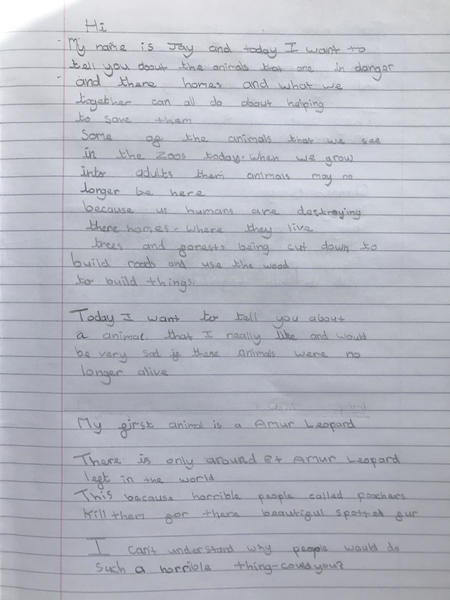 Hi
My name is Jay and today I want to
tell you about the animals that are in danger
and there homes and what we
together can all do about helping
to save them
Some of the animals that we see
in the zoos today. when we grow
into adults them animals may no
longer be here
because us humans are destroying
there homes. where they live
trees and forests being cut down to
build roads and use the wood
to build things.
Today I want to tell you about
a animal that I really like and would
be very sad if these animals were no
longer alive
My first animal is a Amur Leopard
There is only around 84 Amur Leopard
left in the world
This because horrible people called poachers
kill them for there beautiful spotted fur
I can't understand why people would do
such a horrible thing-could you?